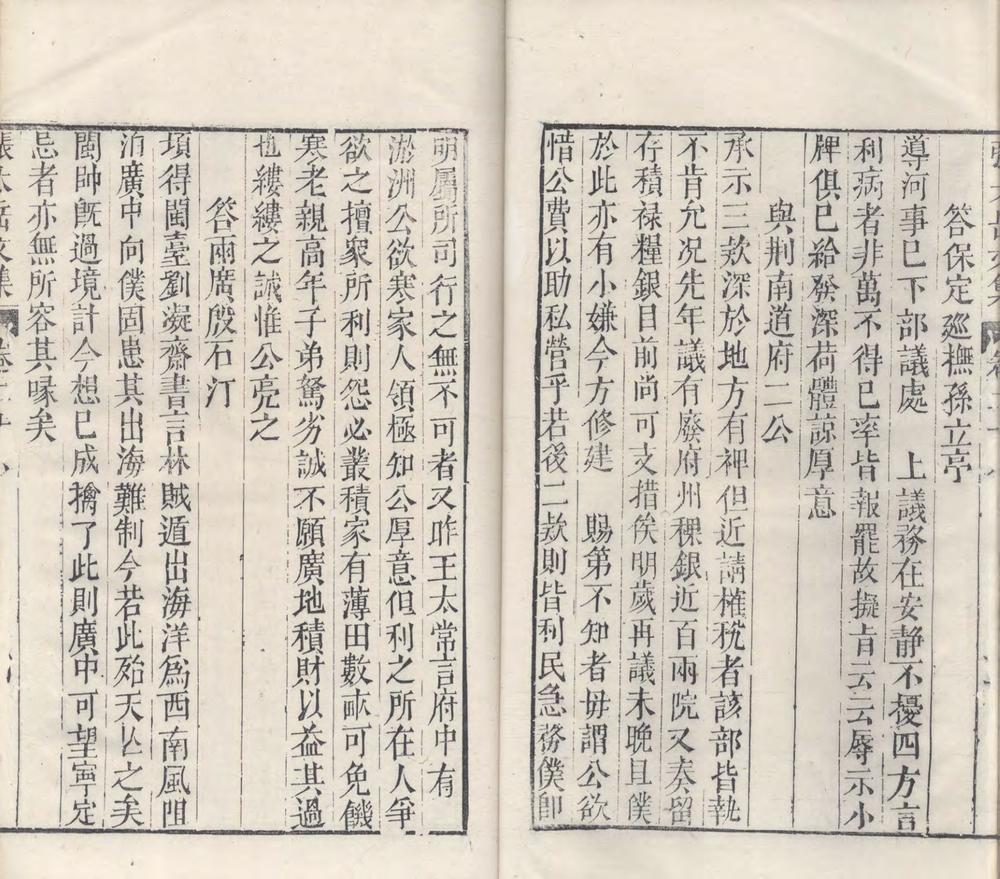 答保定廵撫孫立亭
導河事已下部議處　上議務在安静不擾四方言
利病者非萬不得已率皆報罷故擬旨云云辱示小
牌俱已給發深荷體諒厚意
與荆南道府二公
承示三欵深於地方有裨但近請榷稅者該部皆執
不肯允况先年議有廢府州稞銀近百兩院又奏留
存積禄糧銀目前尚可支措俟明歲再議未晚且僕
於此亦有小嫌今方修建　賜第不知者毋謂公欲
惜公費以助私營乎若後二欵則皆利民急務僕即
明屬所司行之無不可者又昨王太常言府中有
淤洲公欲寒家人領極知公厚意但利之所在人爭
欲之擅衆所利則怨必叢積家有薄田數畝可免饑
寒老親高年子弟駑劣誠不願廣地積財以益其過
也縷縷之誠惟公亮之
答兩廣殷石汀
頃得閩臺劉凝齋書言林賊遁出海洋爲西南風阻
泊廣中向僕固患其出海難制今若此殆天亾之矣
閩帥旣過境計今想已成擒了此則廣中可望寧定
忌者亦無所容其喙矣
張太岳文集